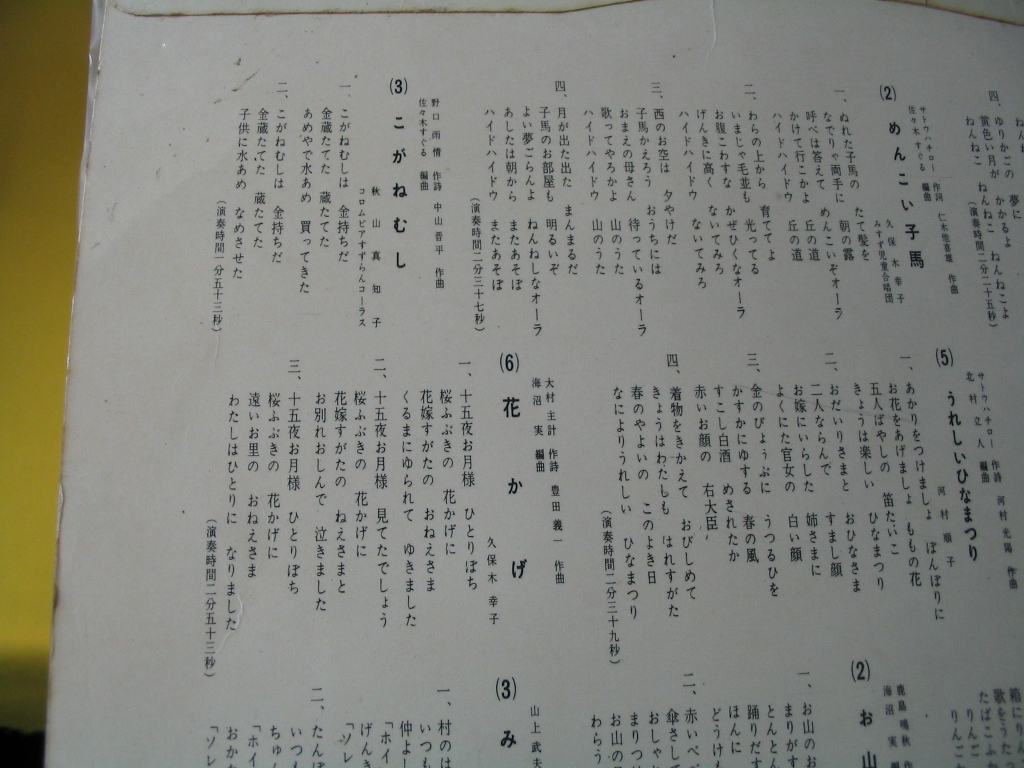 四、
ゆりかごの かかるよ ねんねこよ
黄色い月が ねんねこ
ねんねこ ねんねこよ
(演奏時間二分二十五秒)
(2) めんこい子馬
サトウハチロー 作詞 仁木他喜雄 作曲
佐々木すぐる 編曲
久保木幸子
みすず児童合唱団
一、ぬれた子馬の たて髪を
なでりゃ両手に 朝の露
呼べば答えて めんこいぞオーラ
かけて行こかよ 丘の道
ハイドハイドウ 丘の道
二、わらの上から 育ててよ
いまじゃ毛並も 光ってる
お腹こわすな かぜひくなオーラ
げんきに高く ないてみろ
ハイドハイドウ ないてみろ
三、西のお空は 夕やけだ
子馬かえろう おうちには
おまえの母さん 待っているオーラ
歌ってやろかよ 山のうた
ハイドハイドウ 山のうた
四、月が出た出た まんまるだ
子馬のお部屋も 明るいぞ
よい夢ごらんよ ねんねしなオーラ
あしたは朝から またあそぼ
ハイドハイドウ またあそぼ
(演奏時間二分三十七秒)
(3) こがねむし
野口雨情 作詩 中山晋平 作曲
佐々木すぐる 編曲
秋山真知子
コロムビアすずらんコーラス
一、こがねむしは 金持ちだ
金蔵たてた 蔵たてた
あめやで水あめ 買ってきた
二、こがねむしは 金持ちだ
金蔵たてた 蔵たてた
子供に水あめ なめさせた
(演奏時間一分五十三秒)
(5) うれしいひなまつり
サトウハチロー 作詩 河村光陽 作曲
北村立人 編曲
河村順子
一、あかりをつけましょ ぼんぼりに
お花をあげましょ ももの花
五人ばやしの 笛たいこ
きょうは楽しい ひなまつり
二、おだいりさまと おひなさま
二人ならんで すまし顔
お嫁にいらした 姉さまに
よくにた官女の 白い顔
三、金のびょうぶに うつるひを
かすかにゆする 春の風
すこし白酒 めされたか
赤いお顔の 右大臣
四、着物をきかえて おびしめて
きょうはわたしも はれすがた
春のやよいの このよき日
なによりうれしい ひなまつり
(演奏時間二分三十九秒)
(6) 花かげ
大村主計 作詩 豊田義一 作曲
海沼実 編曲
久保木幸子
一、十五夜お月様 ひとりぼち
桜ふぶきの 花かげに
花嫁すがたの おねえさま
くるまにゆられて ゆきました
二、十五夜お月様 見てたでしょう
桜ふぶきの 花かげに
花嫁すがたの ねえさまと
お別れおしんで 泣きました
三、十五夜お月様 ひとりぼち
桜ふぶきの 花かげに
遠いお里の おねえさま
わたしはひとりに なりました
(演奏時間二分五十三秒)
箱にりん
歌をうたっ
たばこふか
りんご
りんご
(2) お山
鹿島鳴秋 作
海沼実
一、お山のお
まりがす
とんとん
踊りだす
ほんに
どうけも
二、赤いべ
傘さして
おしゃ
まりつ
お山の
わらう
(3) み
山上武夫
一、村のは
いつも
仲よし
「ホイ
げんき
「ソレ
二、たんぼ
いつも
ちゅん
「ホイ
おかか
「ソレ